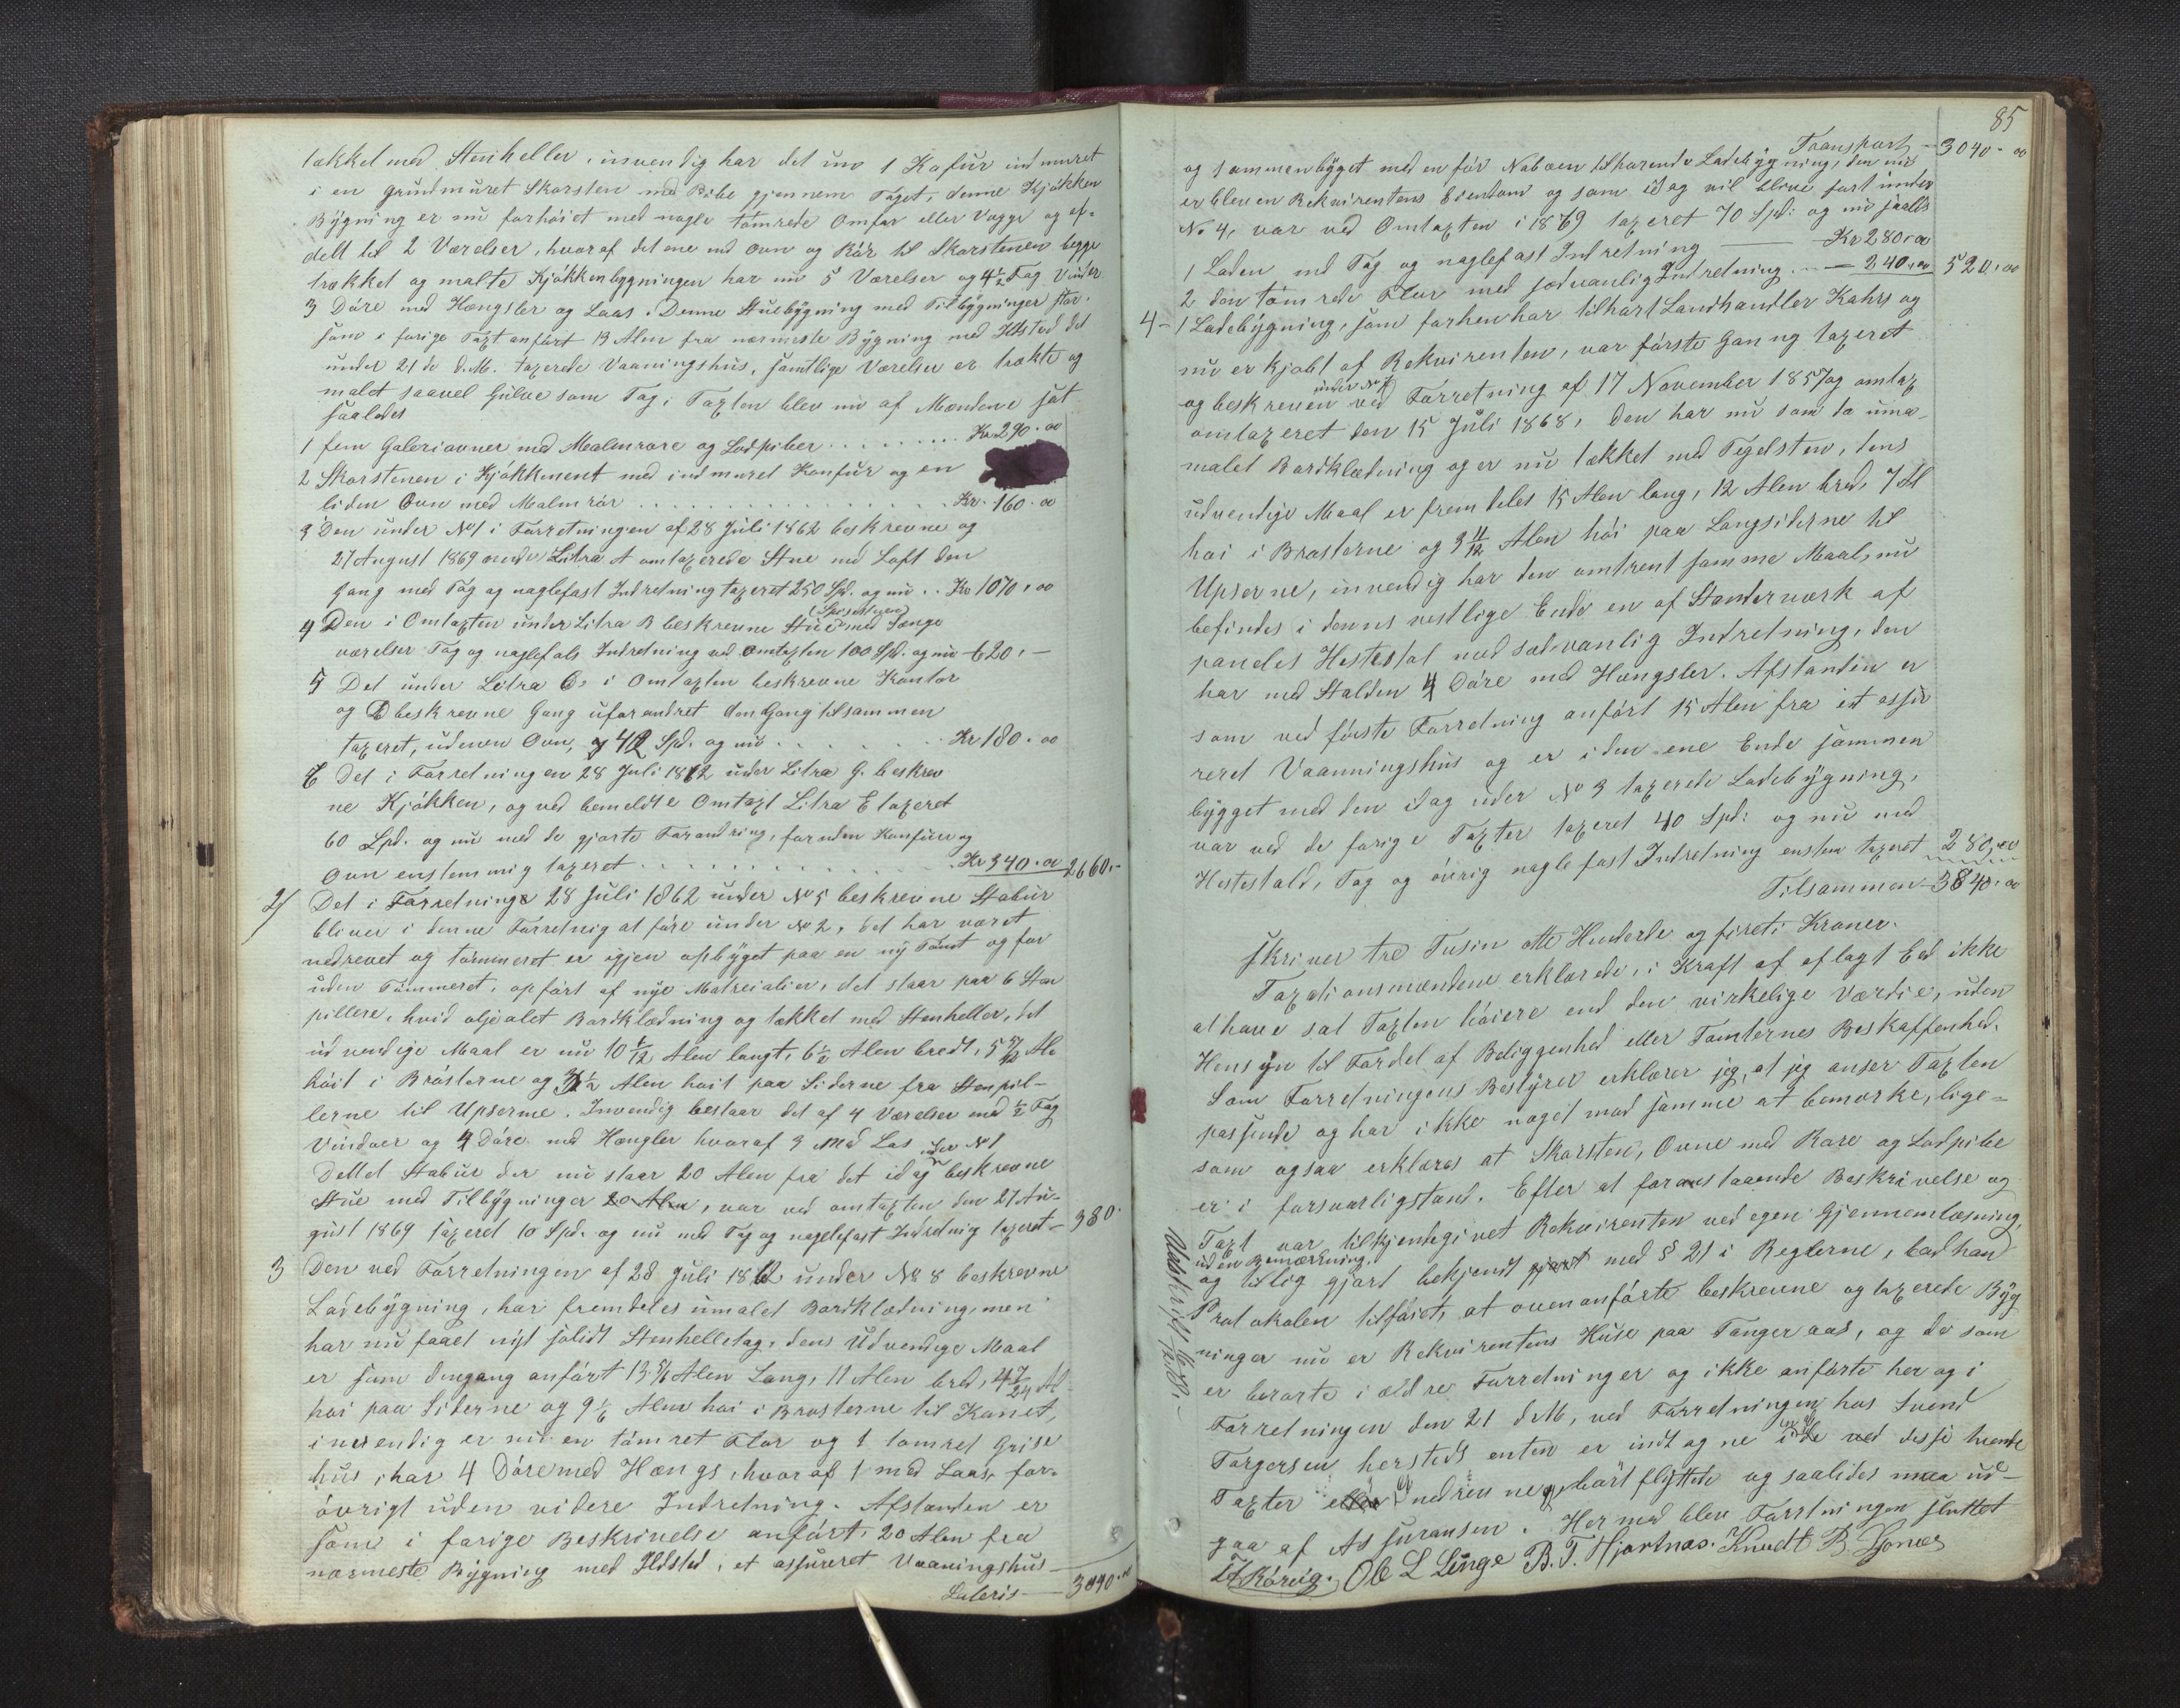 tækket med Stenheller, invendig har det nu 1 Kafur indmuret
i en grundmuret Skorsten med Pibe gjennem Taget, denne Kjøkken
Bygning er nu forhøiet med nogle tømrede Omfar eller Vægge og af-
delt til 2 Værelser, hvoraf det ene med Ovn og Rør til Skorstenen begge
trækket og malte Kjøkkenbygningen har nu 5 Værelser og 4½ Fag Vinduer
3 Døre med Hængsler og Laas. Denne Stuebygning med Tilbygninger staar
som i forige Taxt anført 13 Alen fra nærmeste Bygning med Ildsted det
under 21de d.M. taxerede Vaaningshus, samtlige Værelser er trækte og
malet saavel Gulve som Tag; Taxten blev nu af Mændene sat
saaledes
1 fem Galeriovner med Malmrøre og Lodpiber . . . . . . . . Kr 290.00
2 Skorstenen i Kjøkkenet med indmuret Konfur og en
liden Ovn med Malmrør . . . . . . . . . . . . Kr. 160.00
3 Den under No 1 i Forretningen af 28 Juli 1862 beskrevne og
27 August 1869 under Litra A omtaxerede Stue med Loft den
Gang med Tag og naglefast Indretning taxeret 250 Spd. og nu . . Kr 1070,00
4 Den i Omtaxten under Litra B beskrevne Stue (Spisestuen) med Senge
værelser Tag og naglefals Indretning ved Omtaxten 100 Spd. og nu 620,-
5 Det under Litra C, i Omtaxten beskrevne Kontor
og D beskrevne Gang uforandret den Gang tilsammen
taxeret, uden Ovn, 42 Spd. og nu . . . . . . Kr 180.00
6 Det i Forretningen 28 Juli 1862 under Litra G. beskrev
ne Kjøkken, og ved bemeldte Omtaxt Litra E taxeret
60 Spd. og nu med de gjorte Forandring, foruden Konfur og
Ovn enstemmig taxeret . . . . . . . . . . Kr 340.00 2660.-
2/ Det i Forretninge 28 Juli 1862 under No 5 beskrevne Stabur
bliver i denne Forretnig at føre under No 2, det har været
nedrevet og tømmeret er igjen opbyget paa en ny Tomt og for
uden Tømmeret, opført af nye Matreialier, det staar paa 6 Sten
pillere, hvid oljealet Bordklædning og tækket med Stenheller, det
udvendige Maal er nu 10 /12 Alen langt, 6½ Alen bredt, 5 /12 Al
høit i Brøsterne og 3½ Alen høit paa Siderne fra Stenpil-
lerne til Upserne. Invendig bestaar det af 4 Værelser med ½ Fag
Vinduer og 4 Døre med Hængler hvoraf 3 med Las
Dettet Stabur der nu staar 20 Alen fra det idag under No 1 beskrevne
Stue med Tilbygninger 20 Alen, var ved omtaxten den 27 Au-
gust 1869 taxeret 10 Spd. og nu med Tag og naglefast Indretnig taxeret - 380.
3 Den ved Forretningen af 28 Juli 1862 under No 8 beskrevne
Ladebygning, har fremdeles umalet Bordklædning, men
har nu faaet nyt solidt Stenhelletag, dens Udvendige Maal
er som dengang anført 13 5/6 Alen Lang, 11 Alen bred, 4 7/24 Al
høi paa Siderne og 9 1/6 Alen høi i Brøsterne til Kanet,
invendig er nu en tømret Flor og 1 tomret Grise
hus, har 4 Døre med Hængs, hvoraf 1 med Laas, for-
øvrigt uden videre Indretning. Afstanden er
som i forige Beskrivelse anført, 20 Alen fra
nærmeste Bygning med Ildsted, et assureret Vaaningshus
Lateris - 3040.00
85
Transport - 3040-00
og sammenbyget med en før Naboen tilhørende Ladebygning, den nu
er bleven Rekvirentens Eiendom og som idag vil blive ført under
No 4, var ved Omtaxten i 1869 taxeret 70 Spd: og nu saales
1 Laden med Tag og naglefast Indretning — Kr 280.00
2 den tømrede Flor med sedvanlig Indretning - 240.00 520,00
4 - 1 Ladebygning, som forhen har tilhørt Landhandler Kahrs og
nu er kjøbt af Rekvirenten, var første Gang taxeret
og beskreven under No 7 ved Forretning af 17 November 1857 og omtax
omtaxeret den 15 Juli 1868, den har nu som da uma-
malet Bordklædning og er nu tækket med Tegelsten, dens
udvendige Maal er fremdeles 15 Alen lang, 12 Alen bred, 7 Al
høi i Brøsterne og 3 11/12 Alen høi paa Langsiderne til
Upserne, invendig har den omtrent samme Maal, nu
befindes i dennes vestlige Ende en af Stenderværk af
pandet Hestestal med sædvanlig Indretning, den
har med Stalden 4 Døre med Hængsler. Afstanden er
som ved første Forretning anført 15 Alen fra et assu
reret Vaanningshus og er i den ene Ende sammen
bygget med den idag under No 3 taxerede Ladebygning,
var ved de forige Taxter taxeret 40 Spd: og nu med
Hestestald, Tag og øvrig naglefast Indretning enstem taxeret 280,00
Tilsammen - 3840.00
skriver tre Tusin otte Hunderde og fireti Kroner.
Taxationsmændene erklærede, i Kraft af aflagt Eed ikke
at have sat Taxten høiere end den virkelige Værdie, uden
Hensyn til Fordel af Beliggenhed eller Tomternes Beskaffenhed.
Som Forretningens Bestyrer erklærer jeg, at jeg anser Taxten
passende og har ikke noget mod samme at bemærke, lige-
som ogsaa erklæres at Skorsten, Ovne med Røre og Lodpibe
er i forsvarligstand. Efter at foranstaaende Beskrivelse og
Taxt var tilkjendegivet Rekvirenten ved egen Gjennemlæsning,
uden Bemærkning.
og tillig gjort bekjendt gjort med § 21 i Reglerne, bad han
Protokolen tilføiet, at ovenanførte beskrevne og taxerede Byg
ninger nu er Rekvirentens Huse paa Tangeraas, og de som
er berørte i ældre Forretninger og ikke anførte her og i
Forretningen den 21 d.M, ved Forretningen hos Svend
Torgersen hersteds enten er indtagne i de ved disse hvende
Taxter eller nedrevne og bortflyttede og saaledes maa ud-
gaa af Assuransen. Hermed blev Forrtningen sluttet
Ole L Linge B. T. Hjartnæs. Knudt B.